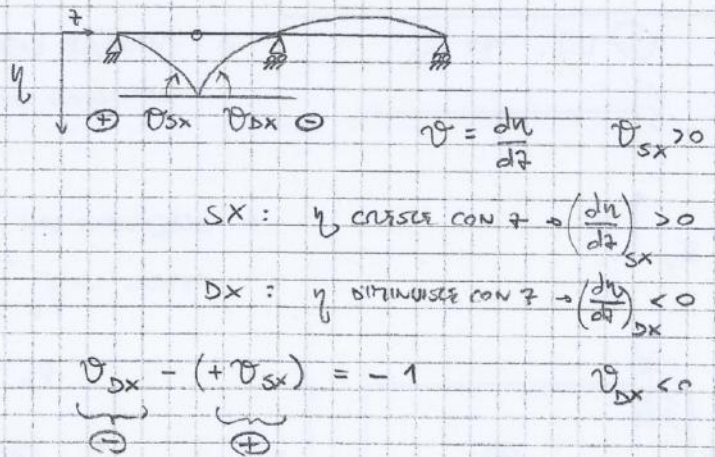 z
η
⊕ ϑSX ϑDX ⊖
ϑ = dη/dz ϑSX > 0
SX : η CRESCE CON z → (dη/dz)SX > 0
DX : η DIMINUISCE CON z → (dη/dz)DX < 0
ϑDX - (+ϑSX) = - 1 ϑDX < 0
⊖ ⊕